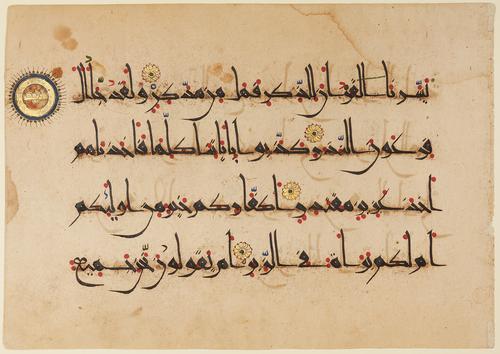 يسرنا القرآن للذكر فهل من مدكر ولقد جاء آل
فرعون النذر كذبوا بآياتنا كلها فأخذناهم
أخذ عزيز مقتدر أكفاركم خير من أولئكم
أم لكم براءة في الزبر أم يقولون نحن جميع